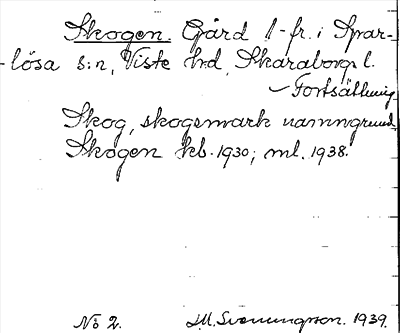 Skogen. Gård 1-fr. i Spar-
lösa s:n, Viste hd, Skaraborgs l.
Fortsättning
Skog, skogsmark namngrund.
Skogen kb. 1930; ml. 1938.
No 2. M. Svenningson. 1939.